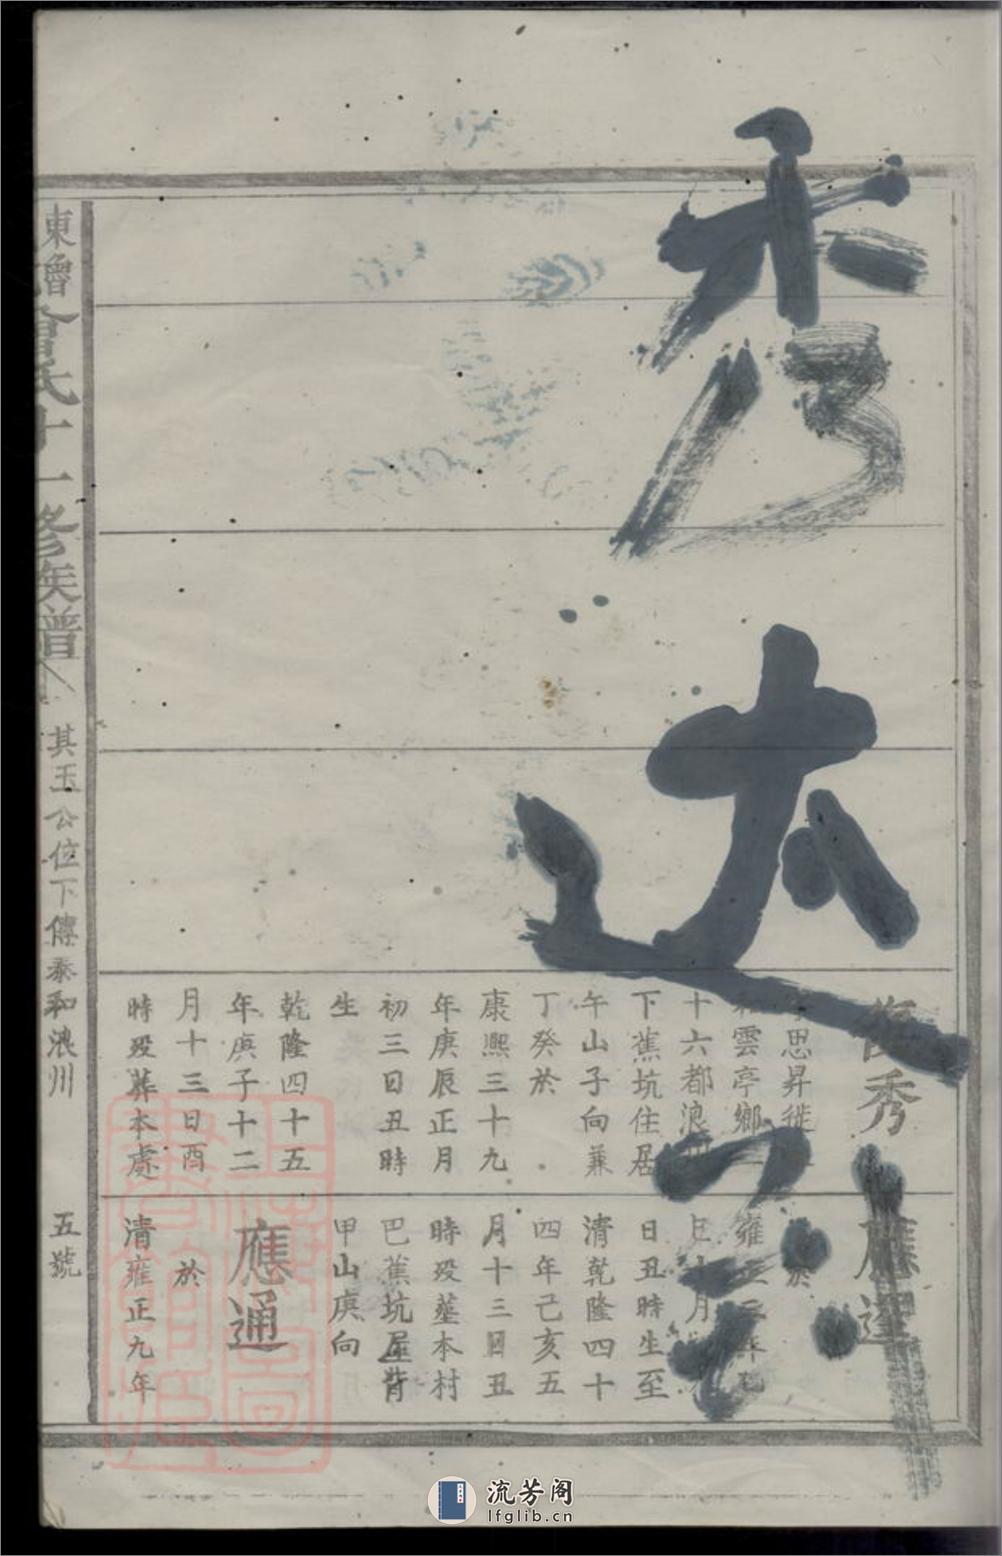 秀达公
俊秀
字思昇徙
和雲亭鄉
十六都浪川
下蕉坑住居
午山子向兼
丁癸於
康熙三十九
年庚辰正月
初三日丑時
生
乾隆四十五
年庚子十二
月十三日酉
時歿葬本處
應達
於
雍正三年乙
巳十月
日丑時生至
清乾隆四十
四年己亥五
月十三日丑
時歿塟本村
巴蕉坑屋背
甲山庚向
應通
於
清雍正九年
東魯曾氏十一修族譜
其玉公位下傳泰和浪州
五號
上海圖書館藏
流芳阁
lfglib.cn